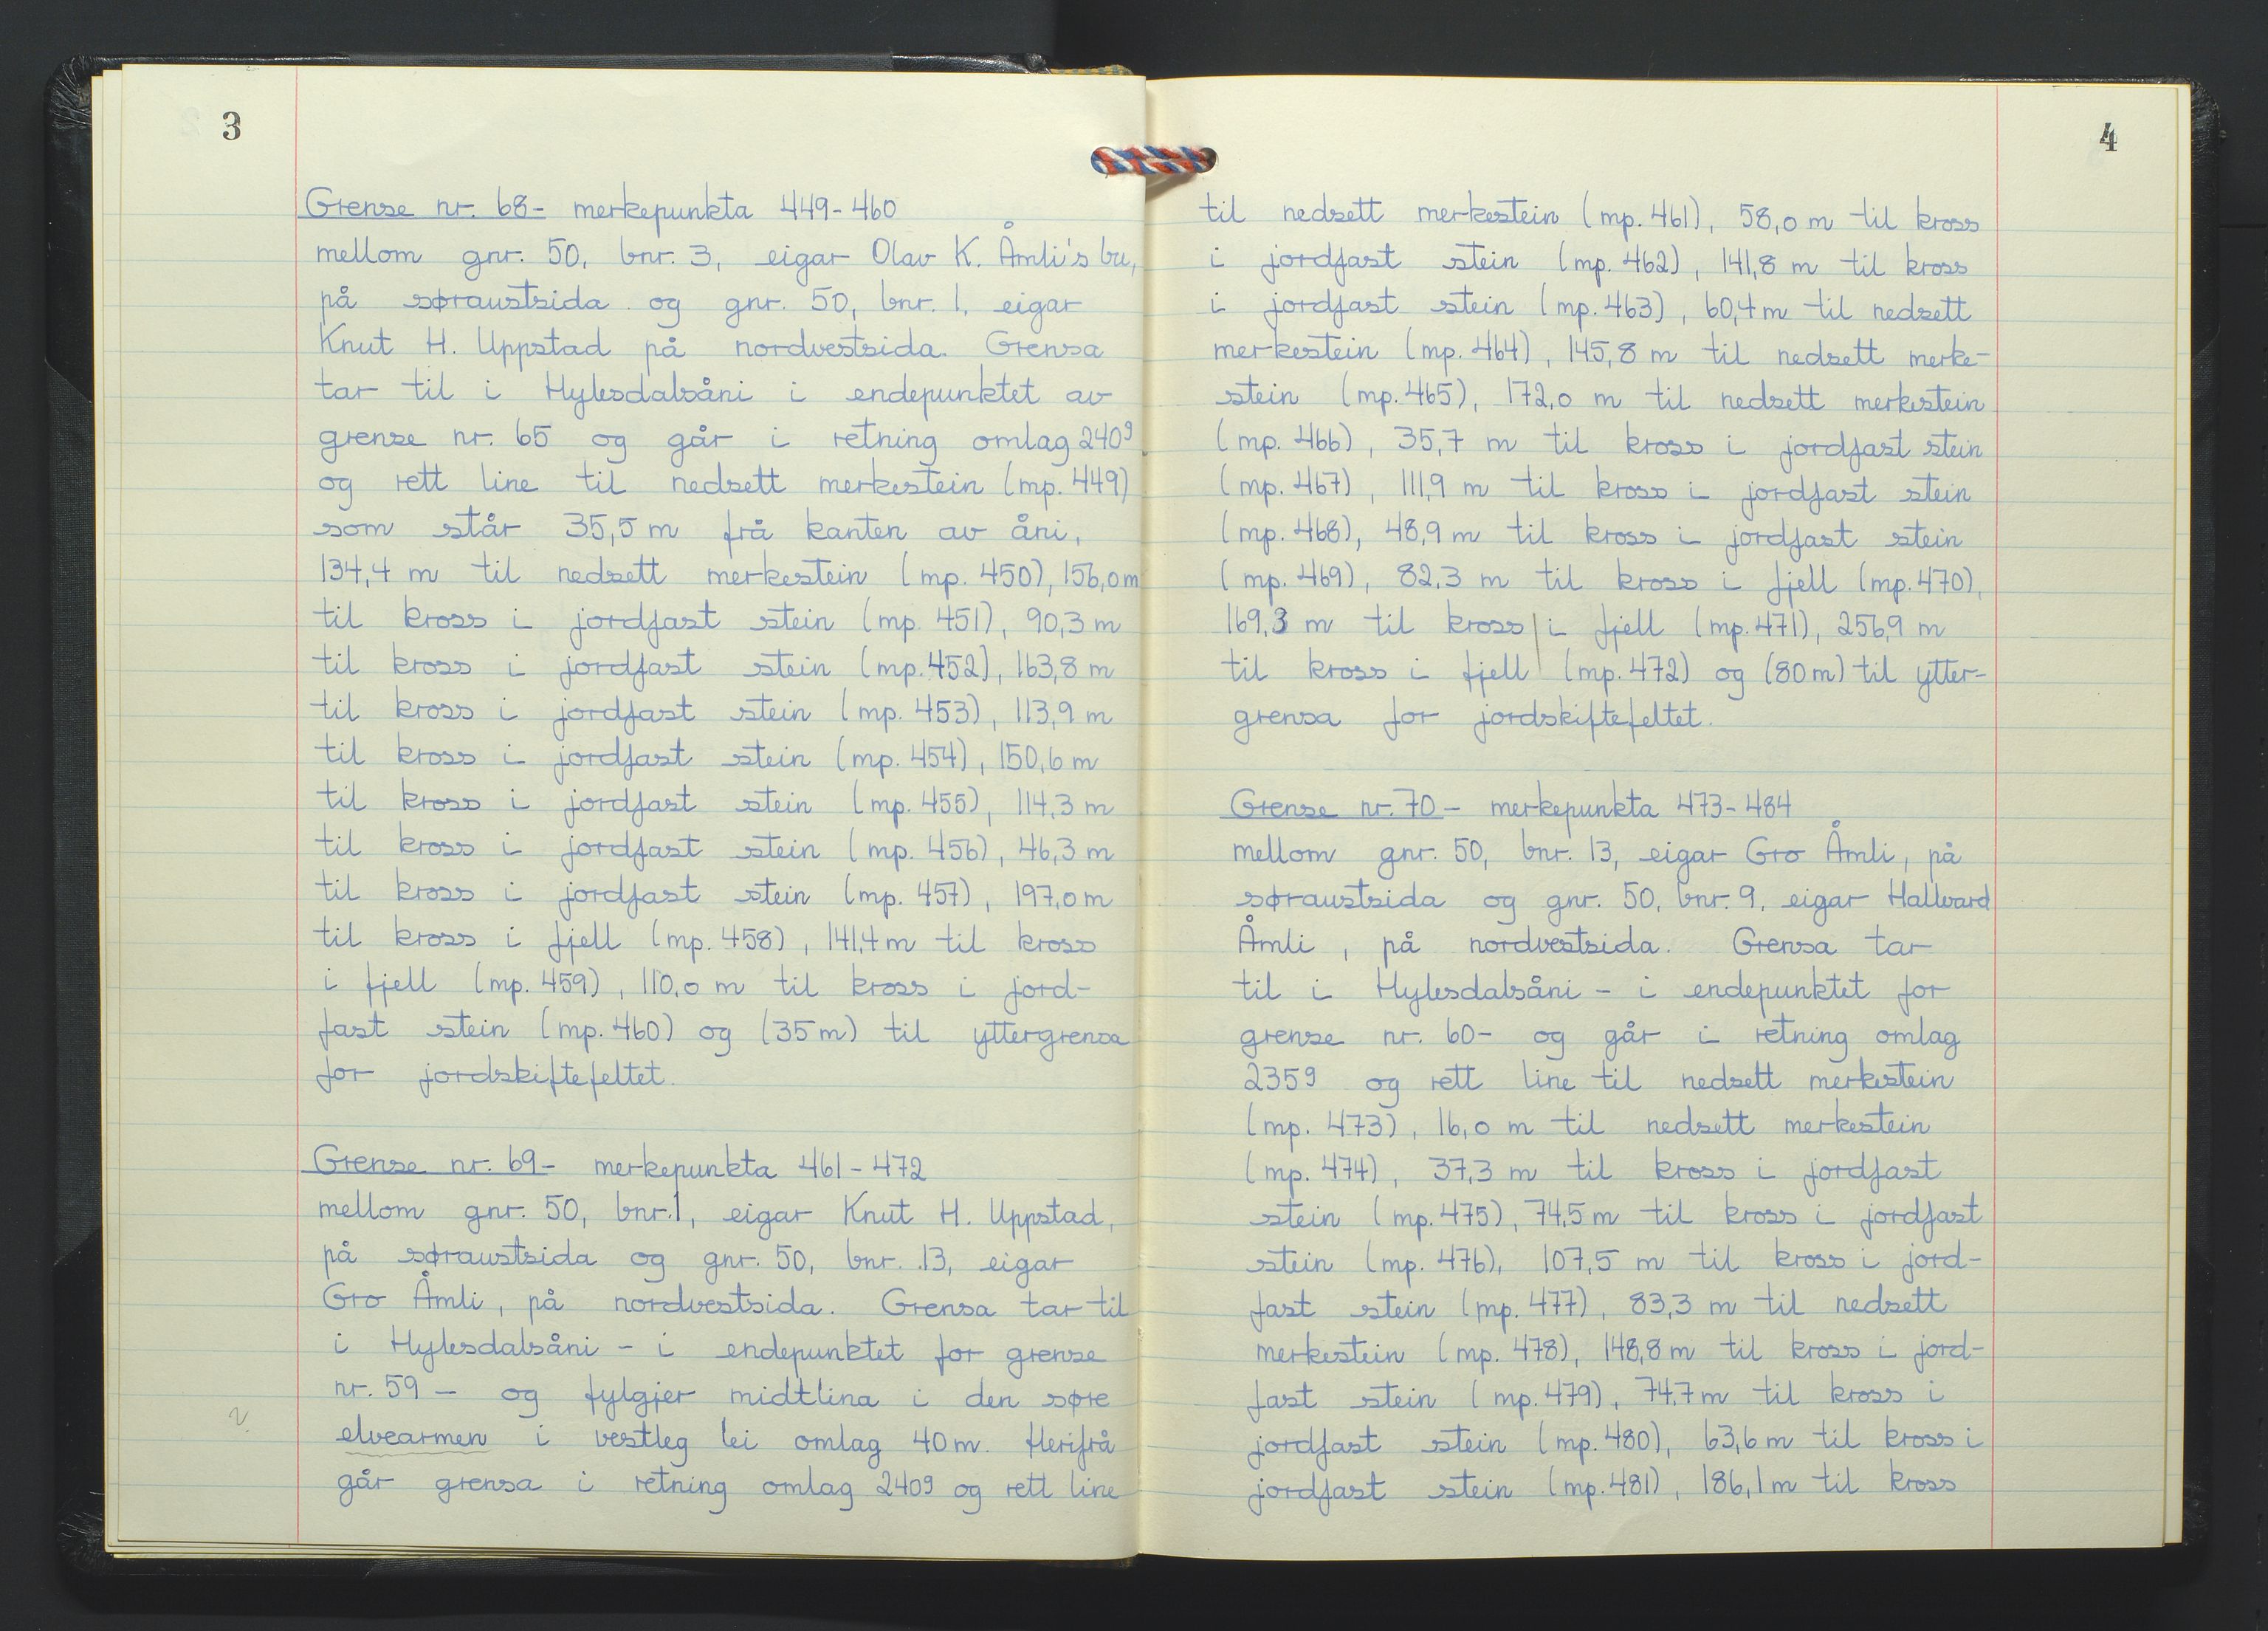 3
Grense nr. 68- merkepunkta 449-460
mellom gnr. 50, bnr. 3, eigar Olav K. Åmli's bu,
på søraustsida og gnr. 50, bnr. 1, eigar
Knut H. Uppstad på nordvestsida. Grensa
tar til i Hylesdalsåni i endepunktet av
grense nr. 65 og går i retning omlag 240g
og rett line til nedsett merkestein (mp. 449)
som står 35,5 m frå kanten av åni,
134,4 m til nedsett merkestein (mp. 450), 156,0 m
til kross i jordfast stein (mp 451), 90,3 m
til kross i jordfast stein (mp. 452), 163,8 m
til kross i jordfast stein (mp. 453), 113,9 m
til kross i jordfast stein (mp. 454), 150,6 m
til kross i jordfast stein (mp. 455), 114,3 m
til kross i jordfast stein (mp. 456), 46,3 m
til kross i jordfast stein (mp. 457), 197,0 m
til kross i fjell (mp. 458), 141,4 m til kross
i fjell (mp. 459), 110,0 m til kross i jord-
fast stein (mp. 460) og (35 m) til yttergrensa
for jordskiftefeltet.
Grense nr. 69- merkepunkta 461-472
mellom gnr. 50, bnr. 1, eigar Knut H. Uppstad,
på søraustsida og gnr. 50, bnr. 13, eigar
Gro Åmli, på nordvestsida. Grensa tar til
i Hylesdalsåni - i endepunktet for grense
nr. 59 - og fylgjer midtlina i den søre
elvearmen i vestleg lei omlag 40 m. Herifrå
går grensa i retning omlag 240g og rett line
4
til nedsett merkestein (mp. 461), 58,0 m til kross
i jordfast stein (mp. 462), 141,8 m til kross
i jordfast stein (mp. 463), 60,4 m til nedsett
merkestein (mp. 464), 145,8 m til nedsett merke-
stein (mp. 465), 172,0 m til nedsett merkestein
(mp. 466), 35,7 m til kross i jordfast stein
(mp. 467), 111,9 m til kross i jordfast stein
(mp. 468), 48,9 m til kross i jordfast stein
(mp. 469), 82,3 m til kross i fjell (mp. 470),
169,3 m til kross i fjell (mp. 471), 256,9 m
til kross i fjell (mp. 472) og (80 m) til ytter-
grensa for jordskiftefeltet.
Grense nr. 70 - merkepunkta 473-484
mellom gnr. 50, bnr. 13, eigar Gro Åmli, på
søraustsida og gnr. 50, bnr. 9, eigar Hallvard
Åmli, på nordvestsida. Grensa tar
til i Hylesdalsåni - i endepunktet for
grense nr. 60- og går i retning omlag
235g og rett line til nedsett merkestein
(mp. 473), 16,0 m til nedsett merkestein
(mp. 474), 37,3 m til kross i jordfast
stein (mp. 475), 74,5 m til kross i jordfast
stein (mp. 476), 107,5 m til kross i jord-
fast stein (mp. 477), 83,3 m til nedsett
merkestein (mp. 478), 148,8 m til kross i jord-
fast stein (mp. 479), 74,7 m til kross i
jordfast stein (mp. 480), 63,6 m til kross i
jordfast stein (mp. 481), 186,1 m til kross